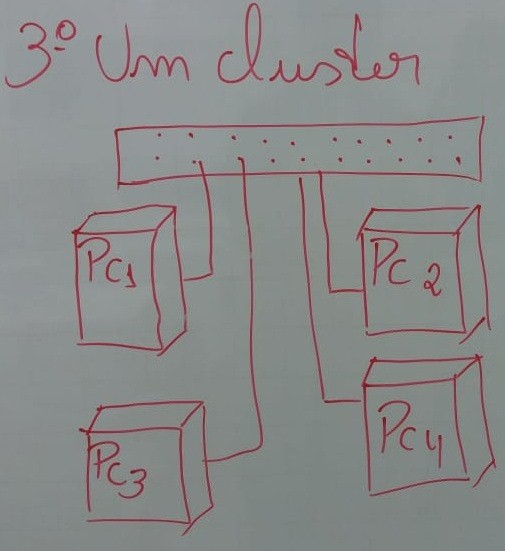 3º Um cluster
PC1
PC2
PC3
PC4